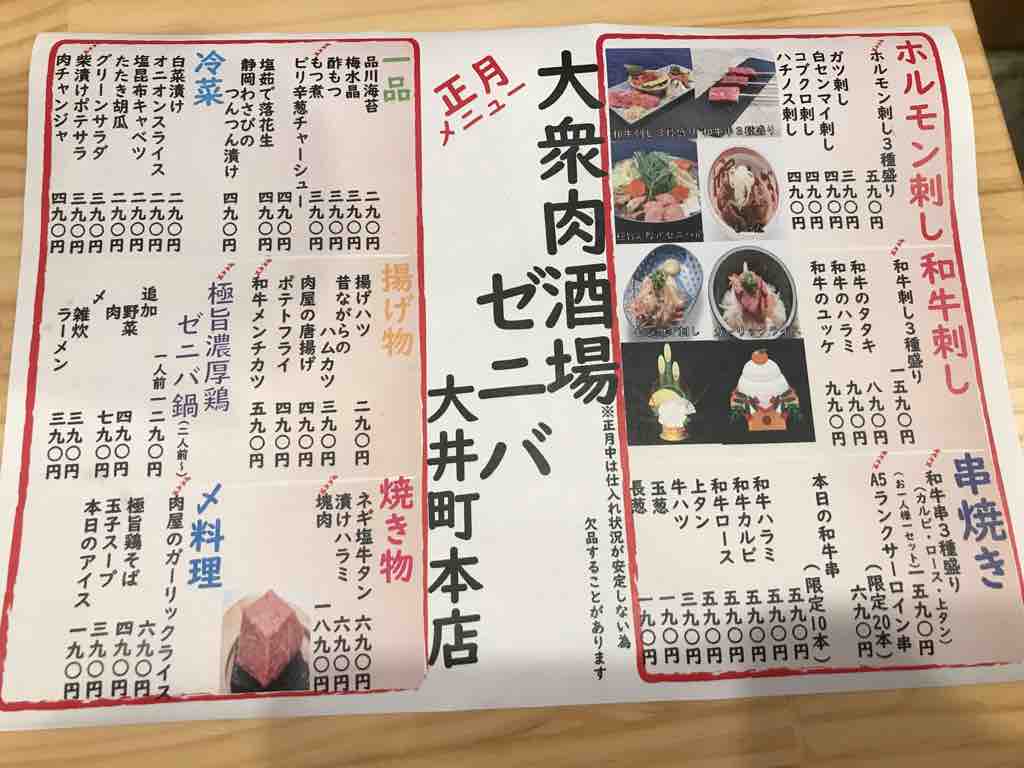 ホルモン刺し
ホルモン刺し３種盛り 五九〇円
ガツ刺し 三九〇円
白センマイ刺し 四九〇円
コブクロ刺し 四九〇円
ハチノス刺し 四九〇円
和牛刺し
和牛刺し３種盛り 一五九〇円
和牛のタタキ 八九〇円
和牛のハラミ 九九〇円
和牛のユッケ 九九〇円
串焼き
和牛串３種盛り
(カルビ・ロース・上タン)
(お一人様一セット) 一五九〇円
A5ランクサーロイン串
(限定20本) 六九〇円
本日の和牛串(限定10本) 五九〇円
和牛ハラミ 五九〇円
和牛カルビ 五九〇円
和牛ロース 五九〇円
上タン 五九〇円
牛ハツ 三九〇円
玉葱 一九〇円
長葱 一九〇円
※正月中は仕入れ状況が安定しない為
欠品することがあります
大衆肉酒場
ゼニバ
大井町本店
正月
メニュー
一品
品川海苔 二九〇円
梅水晶 三九〇円
酢もつ 三九〇円
もつ煮 三九〇円
ピリ辛葱チャーシュー 四九〇円
塩茹で落花生 四九〇円
静岡わさびの
つんつん漬け 四九〇円
冷菜
白菜漬け 二九〇円
オニオンスライス 二九〇円
塩昆布キャベツ 二九〇円
たたき胡瓜 二九〇円
グリーンサラダ 三九〇円
柴漬けポテサラ 三九〇円
肉チャンジャ 四九〇円
揚げ物
揚げハツ 二九〇円
昔ながらの
ハムカツ 三九〇円
肉屋の唐揚げ 四九〇円
ポテトフライ 四九〇円
和牛メンチカツ 五九〇円
極旨濃厚鶏
ゼニバ鍋(二人前~)
一人前一二九〇円
追加
野菜 四九〇円
肉 七九〇円
〆
雑炊 三九〇円
ラーメン 三九〇円
焼き物
ネギ塩牛タン 六九〇円
漬けハラミ 六九〇円
塊肉 一八九〇円
〆料理
肉屋のガーリックライス 六九〇円
極旨鶏そば 四九〇円
玉子スープ 三九〇円
本日のアイス 一九〇円